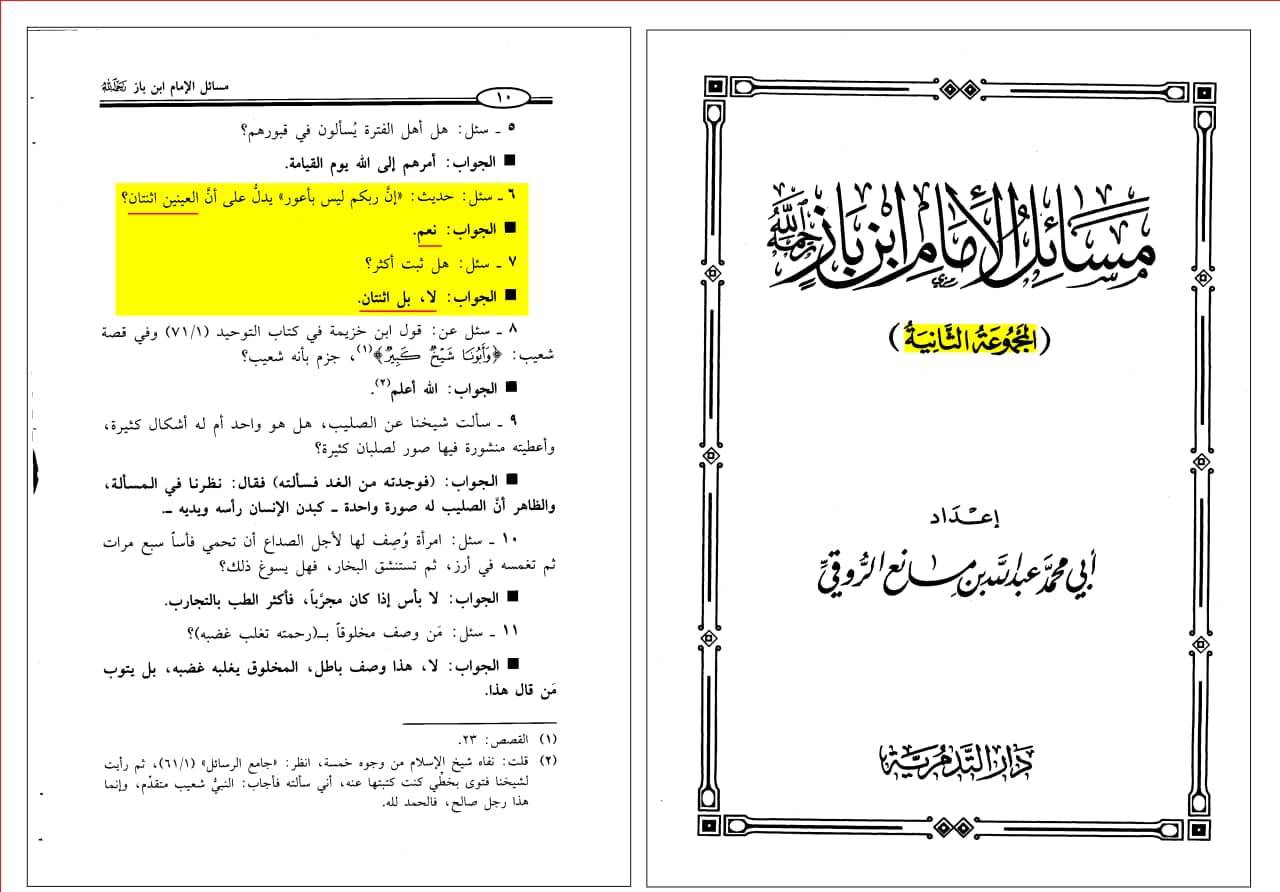 مسائل الإمام ابن باز رحمه الله
(المجموعة الثانية)
إعداد
أبي محمد عبد الله بن مانع الروقي
دار التدمرية
مسائل الإمام ابن باز رحمه الله
١٠
٥ ـ سئل: هل أهل الفترة يُسألون في قبورهم؟
■ الجواب: أمرهم إلى الله يوم القيامة.
٦ ـ سئل: حديث: «إنَّ ربكم ليس بأعور» يدلُّ على أنَّ العينين اثنتان؟
■ الجواب: نعم.
٧ ـ سئل: هل ثبت أكثر؟
■ الجواب: لا، بل اثنتان.
٨ ـ سئل عن: قول ابن خزيمة في كتاب التوحيد (٧١/١) وفي قصة
شعيب: ﴿وَأَبُونَا شَيْخٌ كَبِيرٌ﴾(١)، جزم بأنه شعيب؟
■ الجواب: الله أعلم(٢).
٩ ـ سألت شيخنا عن الصليب، هل هو واحد أم له أشكال كثيرة،
وأعطيته منشورة فيها صور لصلبان كثيرة؟
■ الجواب: (فوجدته من الغد فسألته) فقال: نظرنا في المسألة،
والظاهر أنَّ الصليب له صورة واحدة ـ كبدن الإنسان رأسه ويديه ـ.
١٠ ـ سئل: امرأة وُصِف لها لأجل الصداع أن تحمي فأساً سبع مرات
ثم تغمسه في أرز، ثم تستنشق البخار، فهل يسوغ ذلك؟
■ الجواب: لا بأس إذا كان مجرَّباً، فأكثر الطب بالتجارب.
١١ ـ سئل: مَن وصف مخلوقاً بـ(رحمته تغلب غضبه)؟
■ الجواب: لا، هذا وصف باطل، المخلوق يغلبه غضبه، بل يتوب
مَن قال هذا.
(١) القصص: ٢٣.
(٢) قلت: نفاه شيخ الإسلام من وجوه خمسة، انظر: «جامع الرسائل» (٦١/١)، ثم رأيت
لشيخنا فتوى بخطّي كنت كتبتها عنه، أني سألته فأجاب: النبيُّ شعيب متقدّم، وإنما
هذا رجل صالح، فالحمد لله.